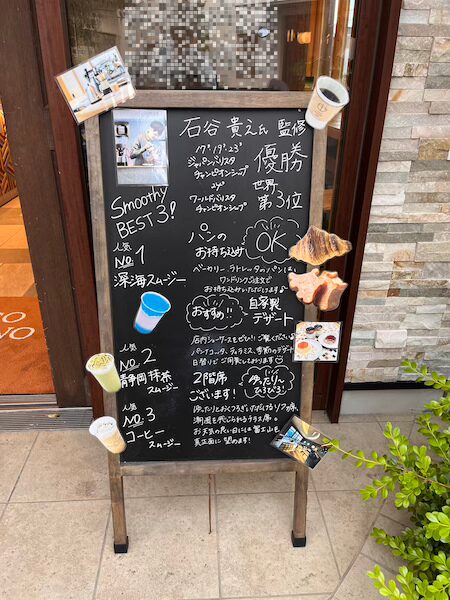 石谷 貴之氏 監修
17' 19' 23'
ジャパンバリスタ
チャンピオンシップ
優勝
24'
ワールドバリスタ
チャンピオンシップ
世界
第3位
Smoothy
BEST 3!
人気
No.1
深海スムージー
人気
No.2
静岡抹茶
スムージー
人気
No.3
コーヒー
スムージー
パンの
お持ち込み
OK
ベーカリー ラトレッタのパンはい
ワンドリンクご注文で
お持ち込みいただけます♪
おすすめ!!
自家製
デザート
店内ショーケースをぜひ!!ご覧ください♪
パンナコッタ、ティラミス、季節のデザート
日替りでご用意しております
2階席
ございます!
ゆったり〜
ひろびろ!
ゆったりとおくつろぎいただけるソファ席、
潮風を感じられるテラス席。
お天気の良い日には富士山も
真正面に望めます!